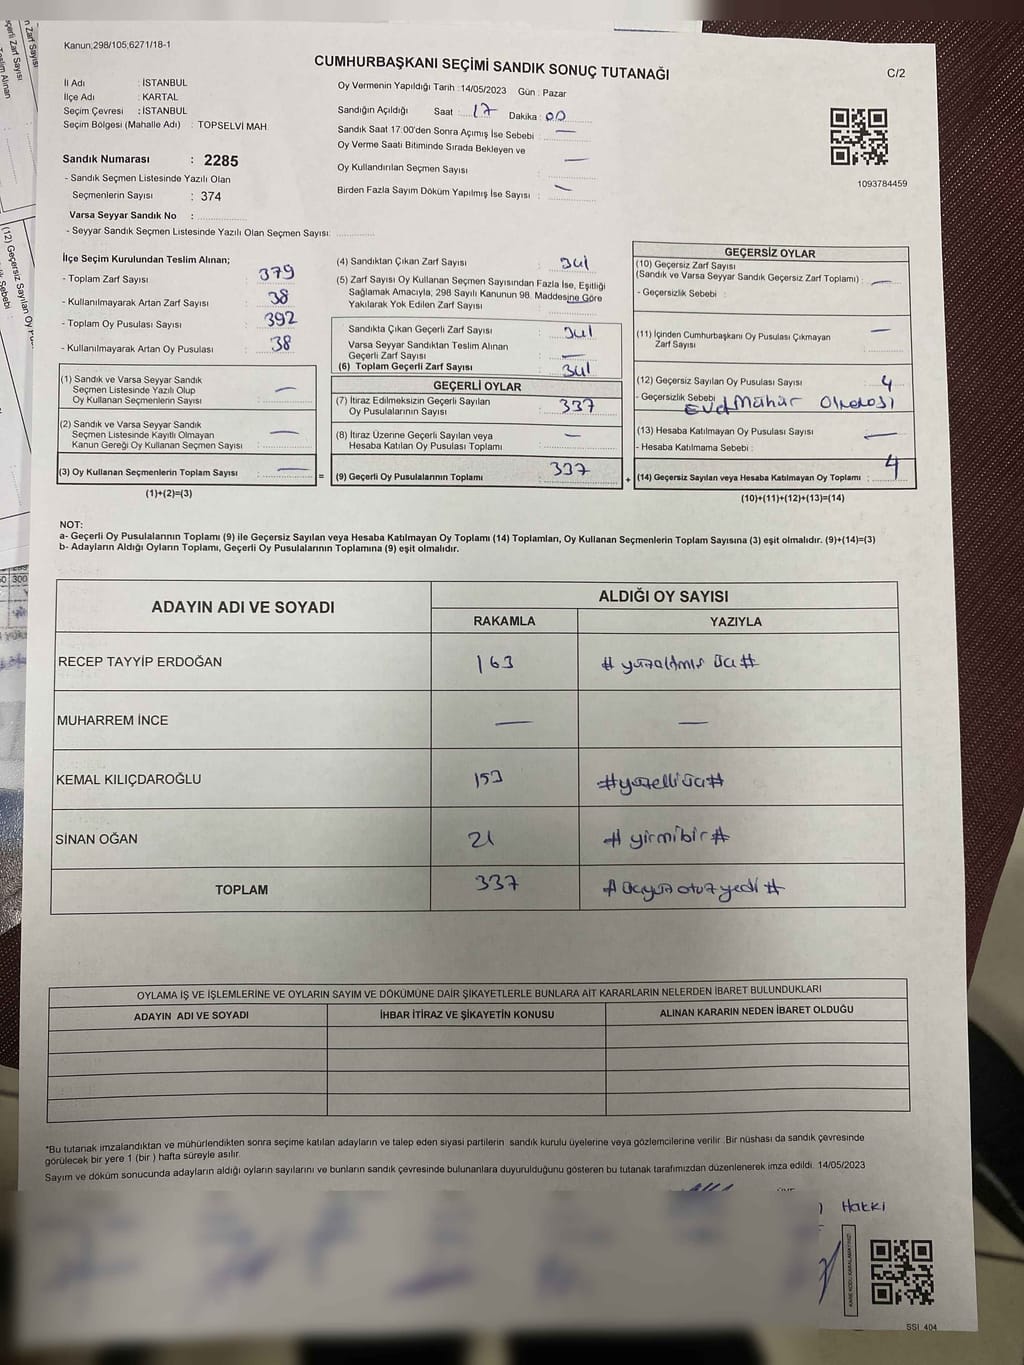 Kanun;298/105,6271/18-1
CUMHURBAŞKANI SEÇİMİ SANDIK SONUÇ TUTANAĞI
C/2
İl Adı : İSTANBUL
İlçe Adı : KARTAL
Seçim Çevresi : İSTANBUL
Seçim Bölgesi (Mahalle Adı) : TOPSELVİ MAH.
Sandık Numarası : 2285
- Sandık Seçmen Listesinde Yazılı Olan
Seçmenlerin Sayısı : 374
Varsa Seyyar Sandık No :
- Seyyar Sandık Seçmen Listesinde Yazılı Olan Seçmen Sayısı:
Oy Vermenin Yapıldığı Tarih :14/05/2023 Gün : Pazar
Sandığın Açıldığı Saat : 17 Dakika : 00
Sandık Saat 17:00'den Sonra Açımış İse Sebebi : —
Oy Verme Saati Bitiminde Sırada Bekleyen ve
Oy Kullandırılan Seçmen Sayısı : —
Birden Fazla Sayım Döküm Yapılmış İse Sayısı : —
1093784459
İlçe Seçim Kurulundan Teslim Alınan;
- Toplam Zarf Sayısı : 379
- Kullanılmayarak Artan Zarf Sayısı : 38
- Toplam Oy Pusulası Sayısı : 392
- Kullanılmayarak Artan Oy Pusulası : 38
(1) Sandık ve Varsa Seyyar Sandık
Seçmen Listesinde Yazılı Olup
Oy Kullanan Seçmenlerin Sayısı : —
(2) Sandık ve Varsa Seyyar Sandık
Seçmen Listesinde Kayıtlı Olmayan
Kanun Gereği Oy Kullanan Seçmen Sayısı : —
(3) Oy Kullanan Seçmenlerin Toplam Sayısı : —
(1)+(2)=(3)
=
(4) Sandıktan Çıkan Zarf Sayısı : 341
(5) Zarf Sayısı Oy Kullanan Seçmen Sayısından Fazla İse, Eşitliği
Sağlamak Amacıyla, 298 Sayılı Kanunun 98. Maddesine Göre
Yakılarak Yok Edilen Zarf Sayısı :
Sandıkta Çıkan Geçerli Zarf Sayısı : 341
Varsa Seyyar Sandıktan Teslim Alınan
Geçerli Zarf Sayısı : —
(6) Toplam Geçerli Zarf Sayısı : 341
GEÇERLİ OYLAR
(7) İtiraz Edilmeksizin Geçerli Sayılan
Oy Pusulalarının Sayısı : 337
(8) İtiraz Üzerine Geçerli Sayılan veya
Hesaba Katılan Oy Pusulası Toplamı : —
(9) Geçerli Oy Pusulalarının Toplamı : 337
+
GEÇERSİZ OYLAR
(10) Geçersiz Zarf Sayısı
(Sandık ve Varsa Seyyar Sandık Geçersiz Zarf Toplamı) : —
- Geçersizlik Sebebi :
(11) İçinden Cumhurbaşkanı Oy Pusulası Çıkmayan —
Zarf Sayısı
(12) Geçersiz Sayılan Oy Pusulası Sayısı 4
- Geçersizlik Sebebi Evet Mühür Olmaması
(13) Hesaba Katılmayan Oy Pusulası Sayısı —
- Hesaba Katılmama Sebebi :
(14) Geçersiz Sayılan veya Hesaba Katılmayan Oy Toplamı : 4
(10)+(11)+(12)+(13)=(14)
NOT:
a- Geçerli Oy Pusulalarının Toplamı (9) ile Geçersiz Sayılan veya Hesaba Katılmayan Oy Toplamı (14) Toplamları, Oy Kullanan Seçmenlerin Toplam Sayısına (3) eşit olmalıdır. (9)+(14)=(3)
b- Adayların Aldığı Oyların Toplamı, Geçerli Oy Pusulalarının Toplamına (9) eşit olmalıdır.
ADAYIN ADI VE SOYADI ALDIĞI OY SAYISI
RAKAMLA YAZIYLA
RECEP TAYYİP ERDOĞAN 163 # yüzaltmış üç #
MUHARREM İNCE — —
KEMAL KILIÇDAROĞLU 153 #yüzelli üç#
SİNAN OĞAN 21 # yirmibir #
TOPLAM 337 # üçyüz otuz yedi #
OYLAMA İŞ VE İŞLEMLERİNE VE OYLARIN SAYIM VE DÖKÜMÜNE DAİR ŞİKAYETLERLE BUNLARA AİT KARARLARIN NELERDEN İBARET BULUNDUKLARI
ADAYIN ADI VE SOYADI İHBAR İTİRAZ VE ŞİKAYETİN KONUSU ALINAN KARARIN NEDEN İBARET OLDUĞU
*Bu tutanak imzalandıktan ve mühürlendikten sonra seçime katılan adayların ve talep eden siyasi partilerin sandık kurulu üyelerine veya gözlemcilerine verilir. Bir nüshası da sandık çevresinde
görülecek bir yere 1 (bir ) hafta süreyle asılır.
Sayım ve döküm sonucunda adayların aldığı oyların sayılarını ve bunların sandık çevresinde bulunanlara duyurulduğunu gösteren bu tutanak tarafımızdan düzenlenerek imza edildi. 14/05/2023
Hakkı
SSI_404